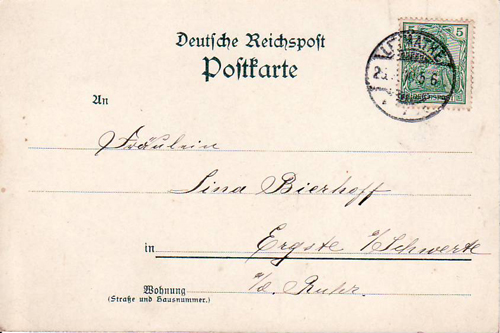 Deutsche Reichspost
Postkarte
5 5
LETMATHE
5-6
An
Fräulein
Lina Bierhoff
in Ergste b/Schwerte
a/d. Ruhr.
Wohnung
(Straße und Hausnummer.)